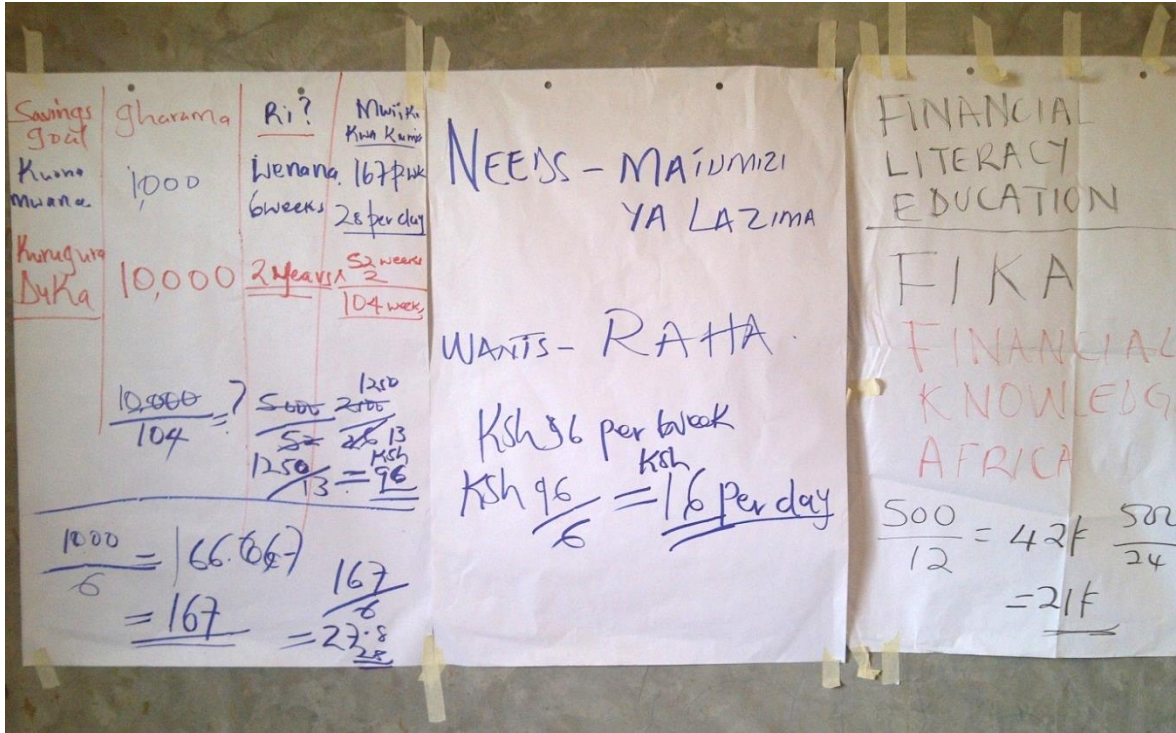 Savings goal gharama Ri? Mwiiko Kwa Kumis
Kuona Mwana 1,000 Wenana 6 weeks 167 p wk
28 per day
Kurugura Duka 10,000 2 Years × 52 weeks
2
104 weeks
10,000/104 = ? 5000/52 2500/26 1250 13
1250/13 = Ksh 96
1000/6 = 166.667
= 167
167/6
= 27.8
28
NEEDS - MATUMIZI
YA LAZIMA
WANTS - RAHA.
Ksh 96 per week
Ksh 96/6 = Ksh 16 per day
FINANCIAL
LITERACY
EDUCATION
FIKA
FINANCIAL
KNOWLEDG
AFRICA
500/12 = 42/= 500/24
= 21/=